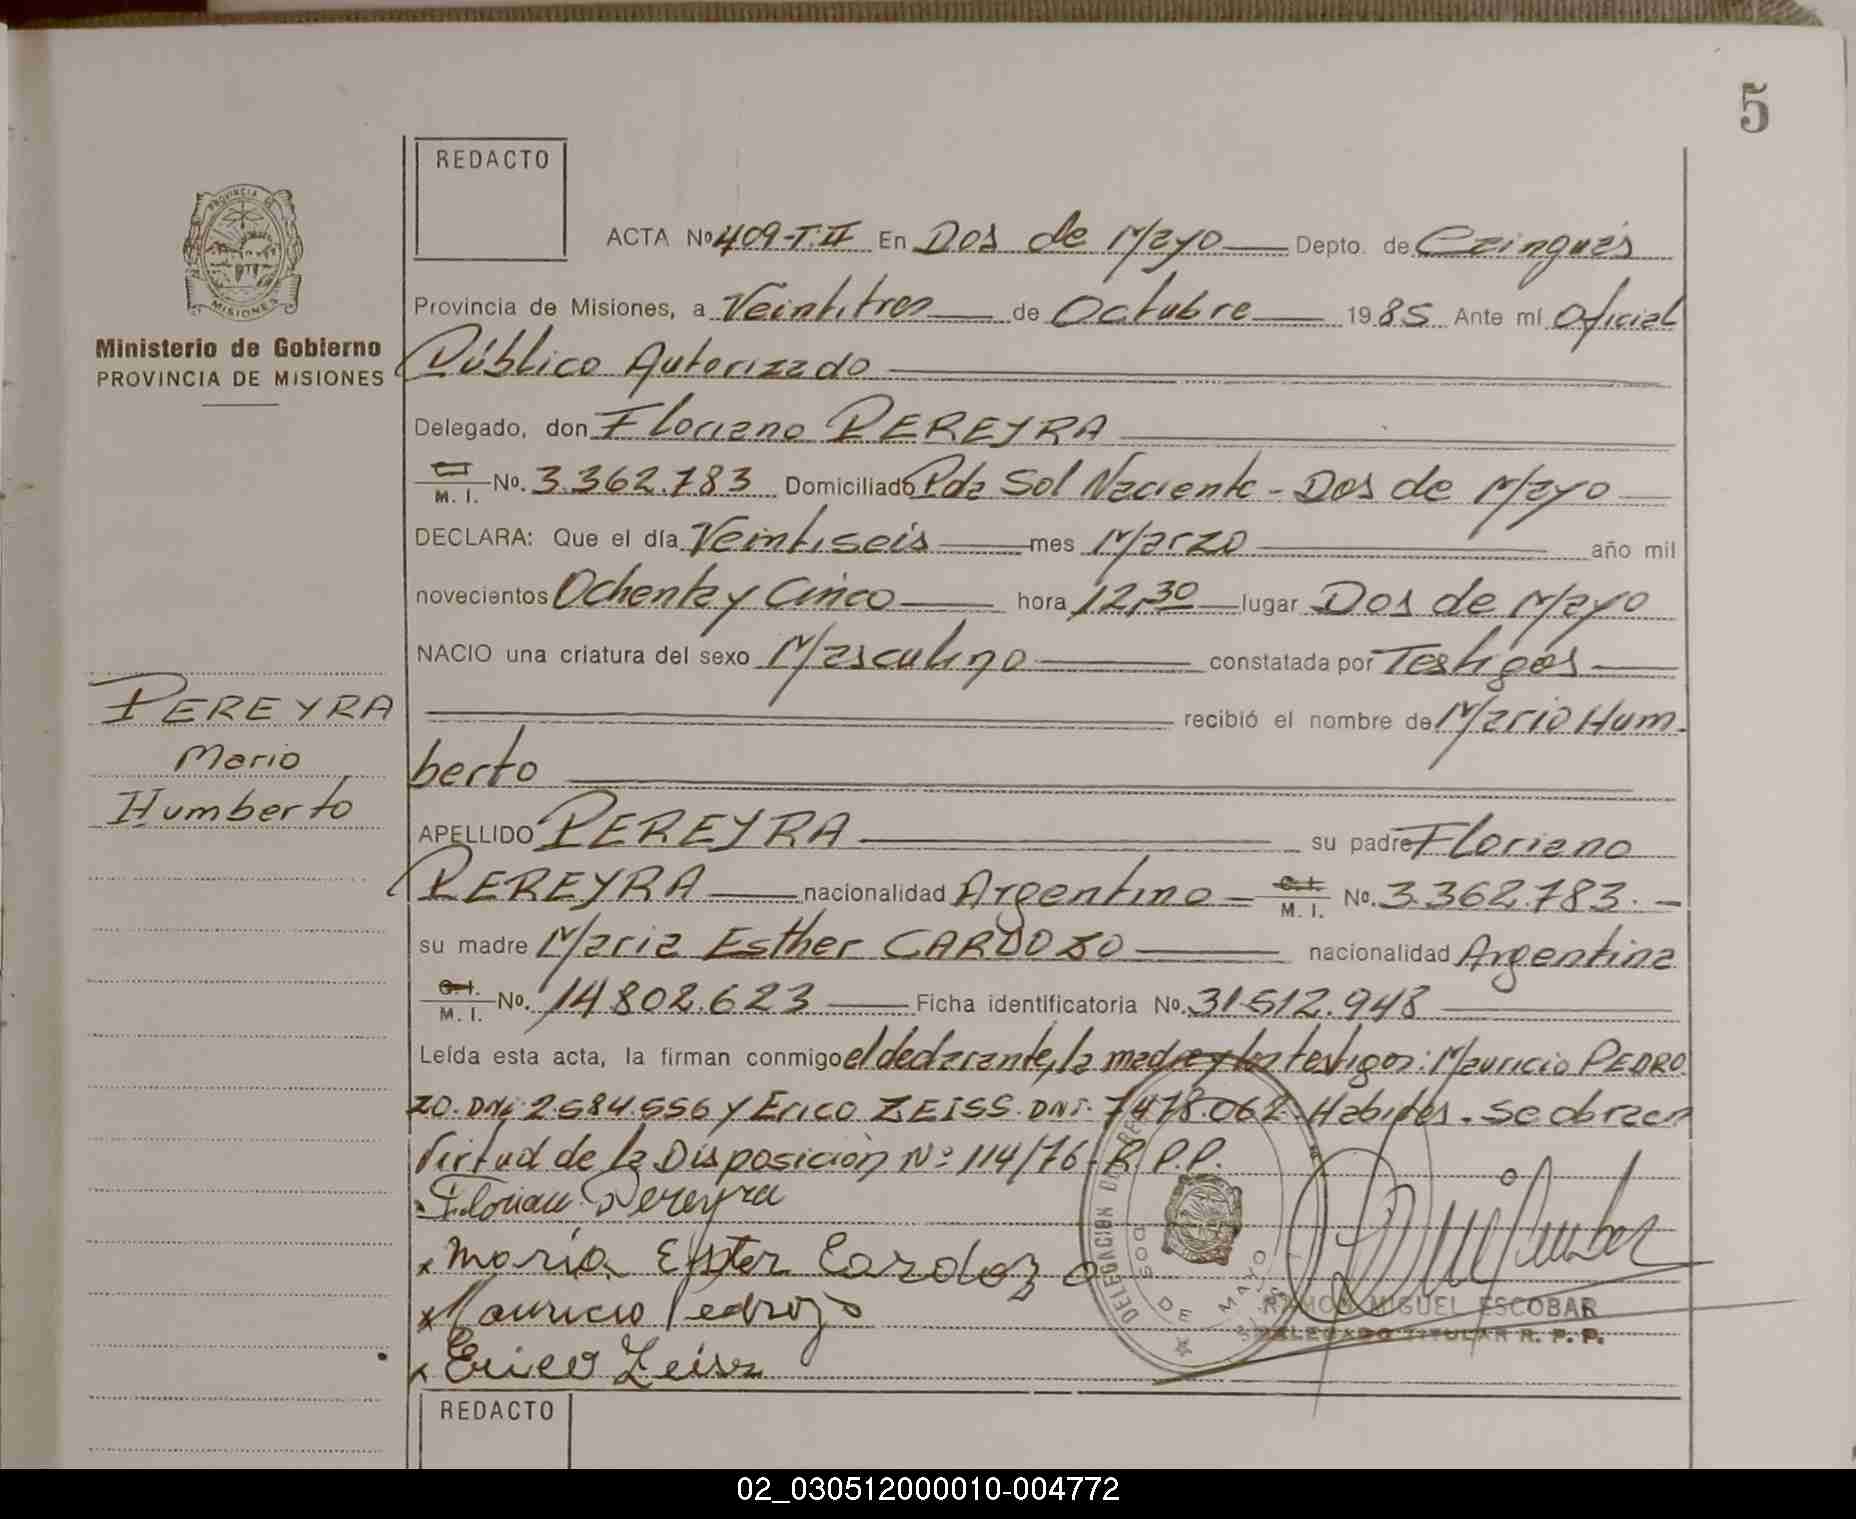 5
REDACTO
PROVINCIA DE
MISIONES
Ministerio de Gobierno
PROVINCIA DE MISIONES
ACTA Nº 409-T.II En Dos de Mayo Depto. de Cainguás
Provincia de Misiones, a Veintitres de Octubre 1985 Ante mí Oficial
Público Autorizado
Delegado, don Floriano PEREYRA
M. I. No. 3.362.783 Domiciliado Pda Sol Naciente - Dos de Mayo
DECLARA: Que el día Veintiseis mes Marzo año mil
novecientos Ochenta y Cinco hora 12,30 lugar Dos de Mayo
NACIO una criatura del sexo Masculino constatada por Testigos
recibió el nombre de Mario Hum-
berto
PEREYRA
Mario
Humberto
APELLIDO PEREYRA su padre Floriano
PEREYRA nacionalidad Argentino - C.I. M. I. No. 3.362.783.-
su madre Maria Esther CARDOZO nacionalidad Argentina
C.I. M. I. No. 14.802.623 Ficha identificatoria No. 31.512.948
Leída esta acta, la firman conmigo el declarante, la madre y los testigos: Mauricio PEDRO
ZO. DNI. 2.584.556 y Erico ZEISS. DNI. 7.478.062. Habiles. Se obra en
Virtud de la Disposición Nº 114/76 - R.P.P.
Florian Pereyra
x Maria Ester Cardozo
x Mauricio Pedrozo
x Erico Zeiss
DELEGACION DE
DOS DE MAYO
RAMON MIGUEL ESCOBAR
DELEGADO TITULAR R. P. P.
REDACTO
02_030512000010-004772